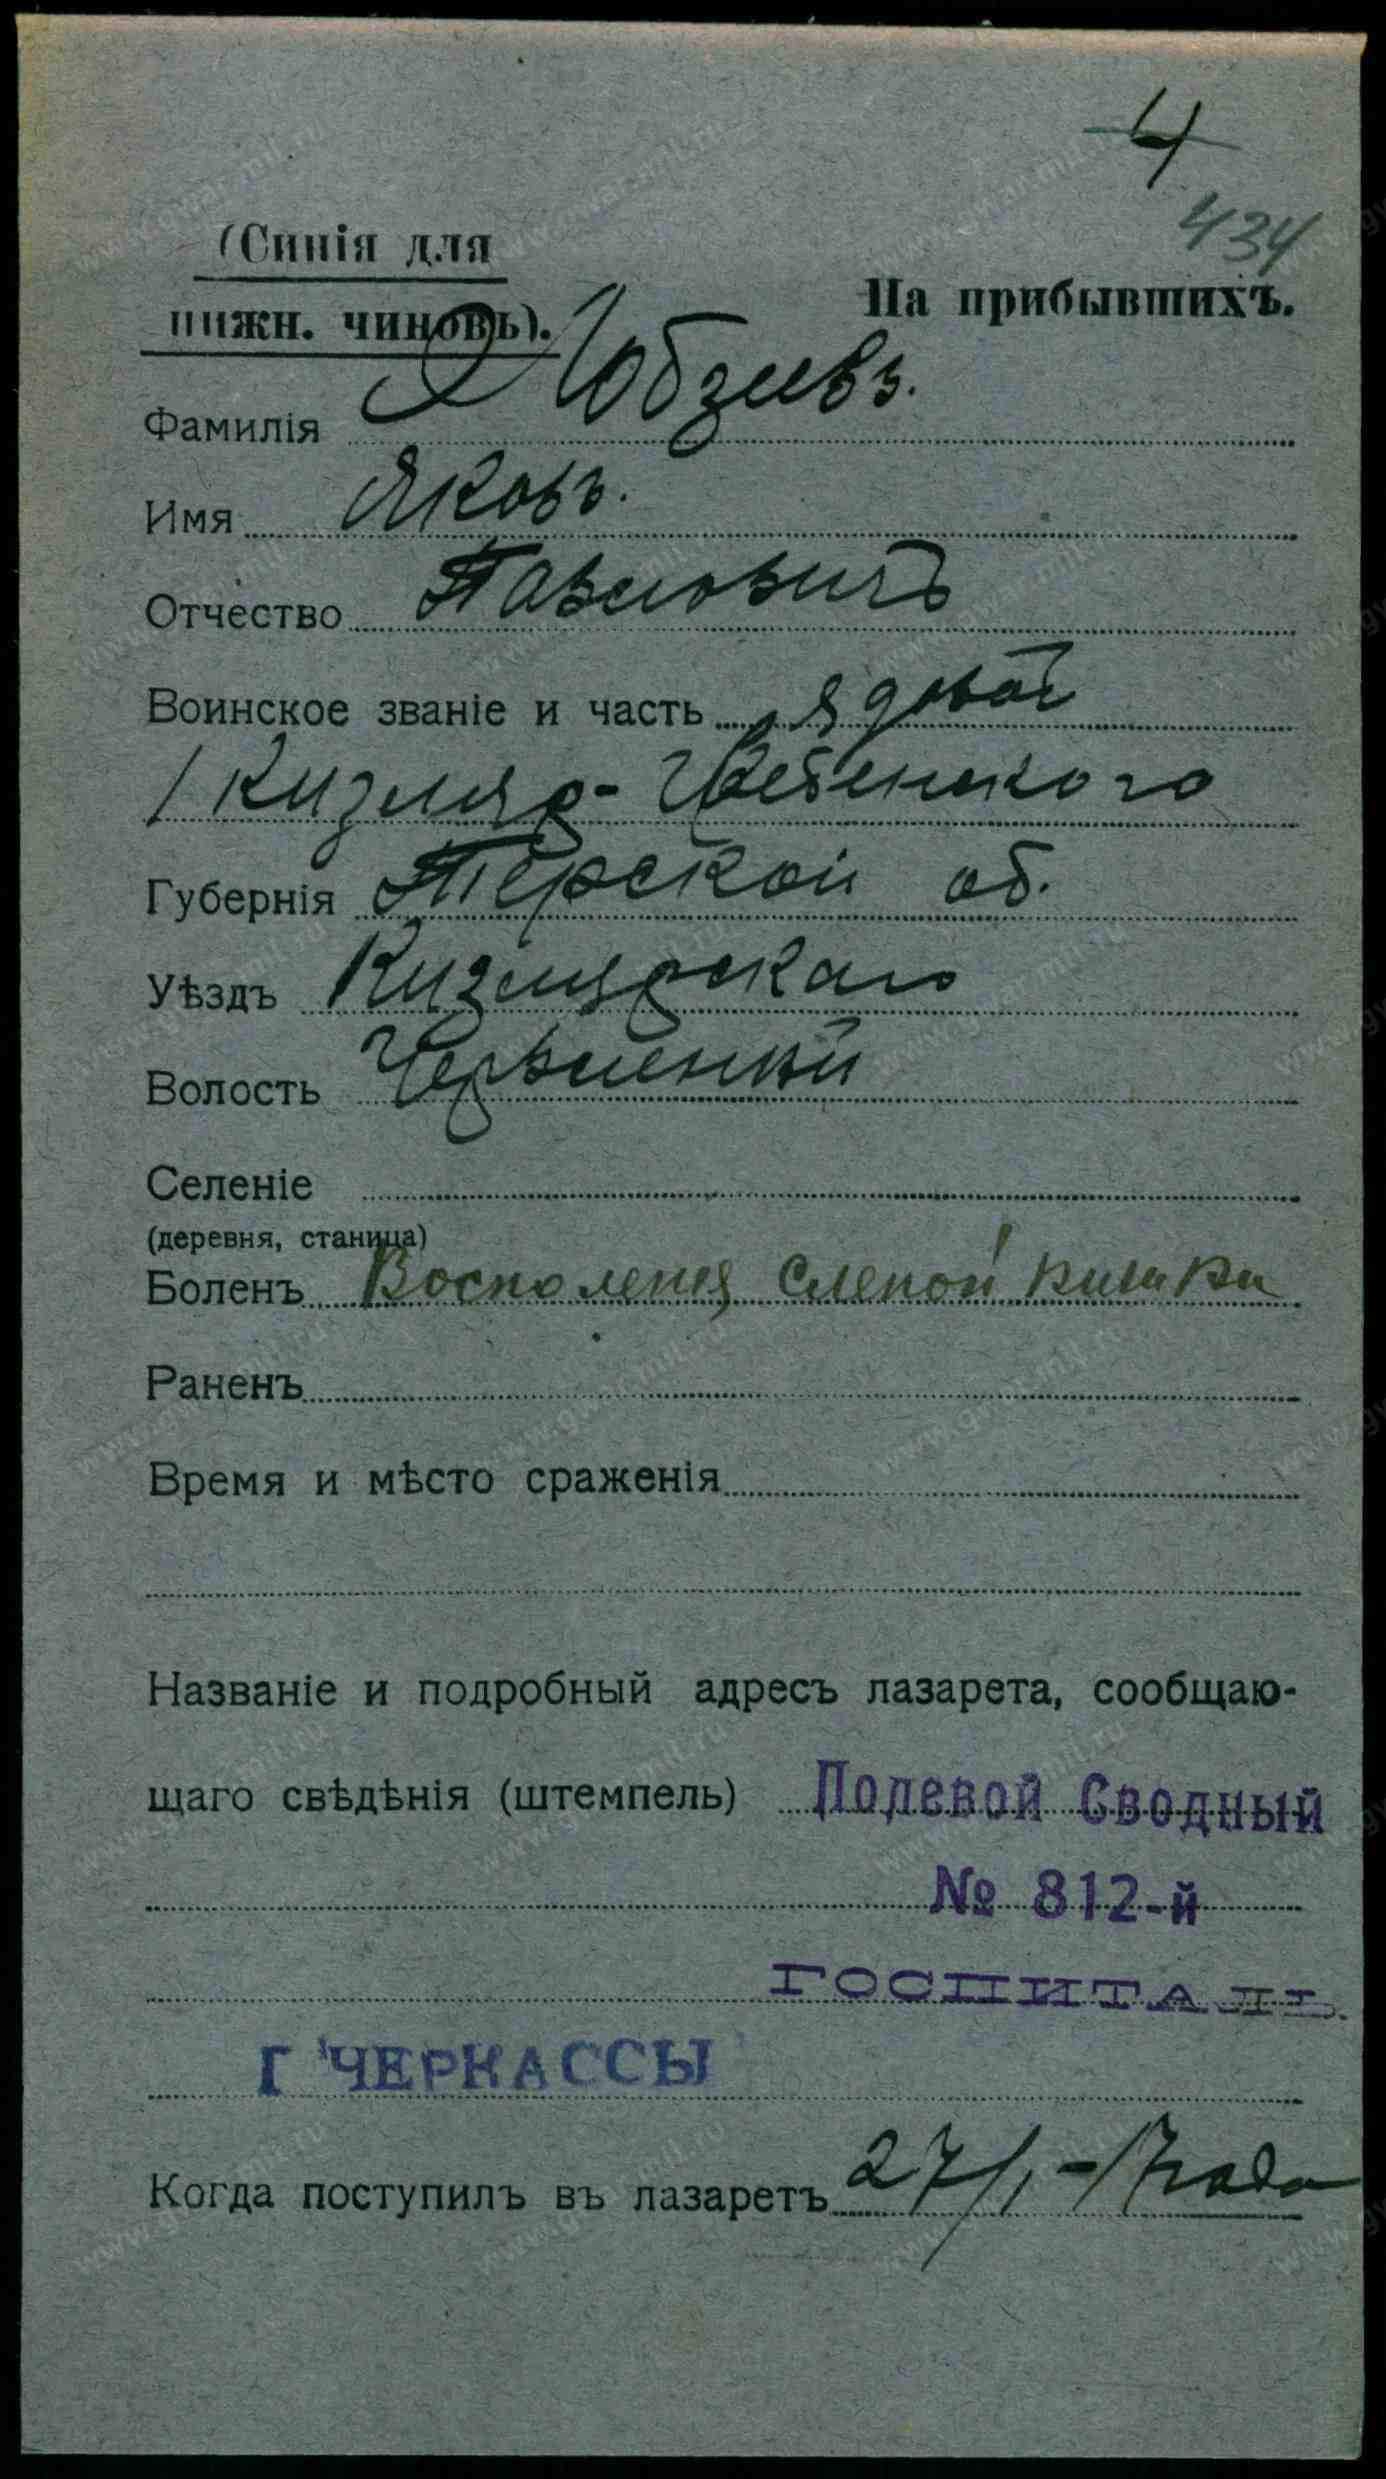 4
434
(Синія для
нижн. чиновъ).
На прибывшихъ.
Фамилія
Имя Яковъ.
Отчество Павловичъ
Воинское званіе и часть рядовой
1 Кизляр-Гребенского
Губернія Терской об.
Уѣздъ Кизлярскаго
Волость Червленный
Селеніе
(деревня, станица)
Боленъ Восполения слепой кишки
Раненъ
Время и мѣсто сраженія
Названіе и подробный адресъ лазарета, сообщаю-
щаго свѣдѣнія (штемпель) Полевой Сводный
№ 812-й
ГОСПИТАЛЬ.
Г ЧЕРКАССЫ
Когда поступилъ въ лазаретъ 27/1-17 года